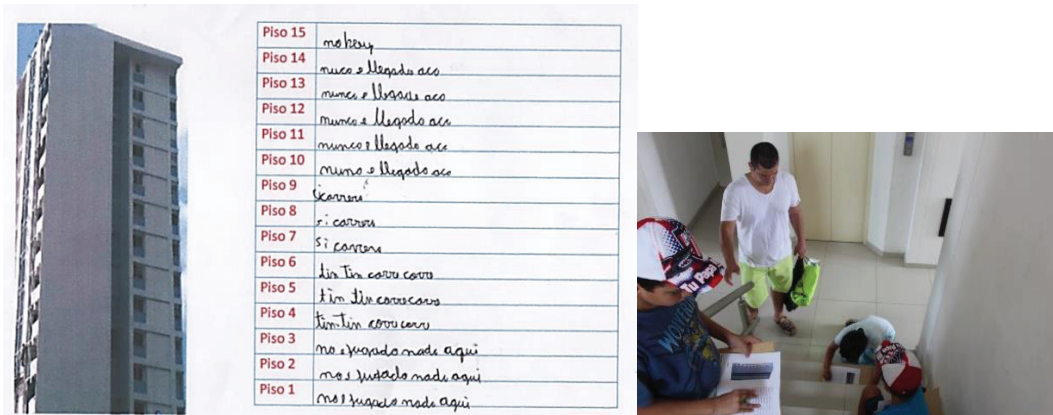 Piso 15
Piso 14 e llegado aco
Piso 13 e llegado aco
Piso 12 nunco e llegado aco
Piso 11 nunco e llegado aco
Piso 10 e llegado aco
Piso 9
Piso 8 si carrera
Piso 7 si carrera
Piso 6 tin Tin corre corre
Piso 5 tin tin corre corre
Piso 4 tin tin corre corre
Piso 3 no e jugado nada aqui
Piso 2 no e jugado nada aqui
Piso 1 no e jugado nada aqui
Tu Papi
WOLVERINE